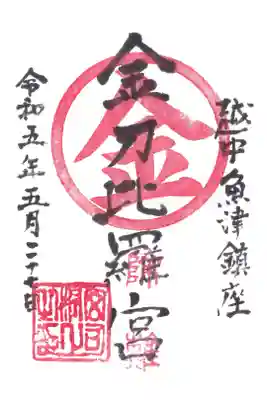 越中魚津鎮座
金刀比羅宮
金
令和五年五月二十七日